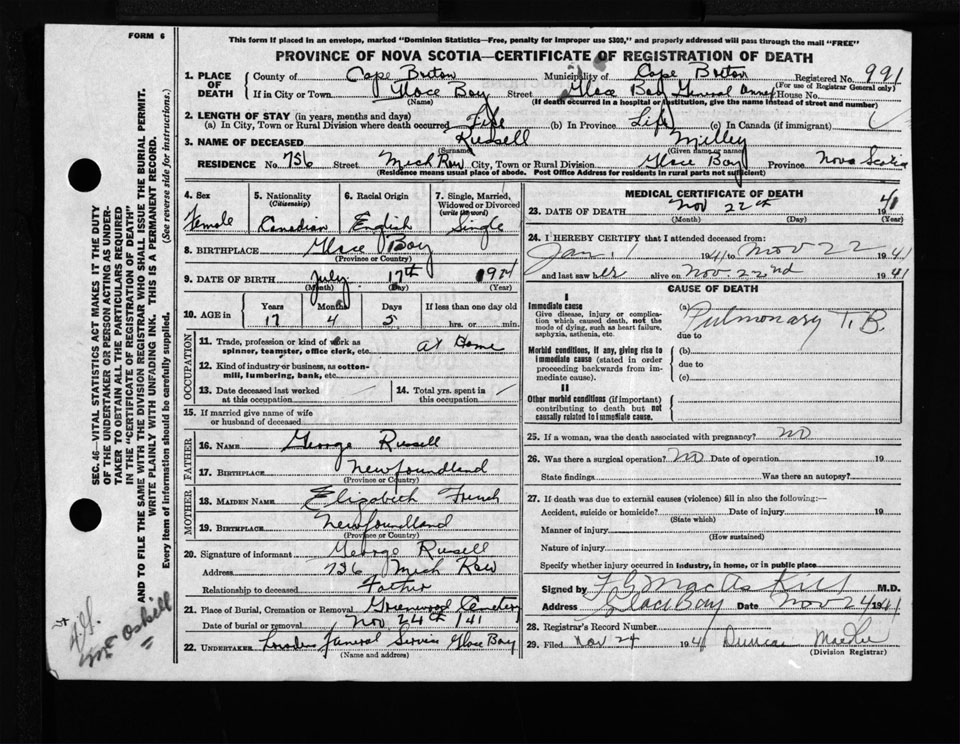 FORM 6
This form if placed in an envelope, marked "Dominion Statistics—Free, penalty for improper use $300," and properly addressed will pass through the mail "FREE"
PROVINCE OF NOVA SCOTIA—CERTIFICATE OF REGISTRATION OF DEATH
1. PLACE OF DEATH County of Cape Breton Municipality of Cape Breton Registered No. 991
(For use of Registrar General only)
If in City or Town Glace Bay Street Glace Bay General Annex House No.
(Name) (If death occurred in a hospital or institution, give the name instead of street and number)
2. LENGTH OF STAY (in years, months and days)
(a) In City, Town or Rural Division where death occurred Life (b) In Province Life (c) In Canada (if immigrant)
3. NAME OF DECEASED Russell Milley
(Surname) (Given name or names)
RESIDENCE No. 756 Street Mich Row City, Town or Rural Division Glace Bay Province Nova Scotia
(Residence means usual place of abode. Post Office Address for residents in rural parts not sufficient)
4. Sex 5. Nationality 6. Racial Origin 7. Single, Married,
(Citizenship) Widowed or Divorced
(write the word)
Female Canadian English Single
8. BIRTHPLACE Glace Bay
(Province or Country)
9. DATE OF BIRTH July 17th
(Month) (Day) (Year)
10. AGE Years Months Days If less than one day old
17 4 5 hrs. or min.
OCCUPATION
11. Trade, profession or kind of work as
spinner, teamster, office clerk, etc. at Home
12. Kind of industry or business, as cotton-
mill, lumbering, bank, etc.
13. Date deceased last worked at this occupation 14. Total yrs. spent in this occupation
15. If married give name of wife
or husband of deceased
FATHER
16. NAME George Russell
17. BIRTHPLACE Newfoundland
(Province or Country)
MOTHER
18. MAIDEN NAME Elizabeth French
19. BIRTHPLACE Newfoundland
(Province or Country)
20. Signature of informant George Russell
Address 756 Mich Row
Relationship to deceased Father
21. Place of Burial, Cremation or Removal Greenwood Cemetery
Date of burial or removal Nov 24th 1941
22. UNDERTAKER Funeral Service Glace Bay
(Name and address)
MEDICAL CERTIFICATE OF DEATH
23. DATE OF DEATH Nov 22nd 1941
(Month) (Day) (Year)
24. I HEREBY CERTIFY that I attended deceased from:
Jan. 1 1941 to Nov 22 1941
and last saw her alive on Nov. 22nd 1941
CAUSE OF DEATH
I
Immediate cause (a) Pulmonary T. B.
Give disease, injury or complica-
tion which caused death, not the
mode of dying, such as heart failure,
asphyxia, asthenia, etc.
due to
Morbid conditions, if any, giving rise to (b)
immediate cause (stated in order due to
proceeding backwards from im-
mediate cause). (c)
II
Other morbid conditions (if important)
contributing to death but not
causally related to immediate cause.
25. If a woman, was the death associated with pregnancy? no
26. Was there a surgical operation? No Date of operation 19
State findings Was there an autopsy?
27. If death was due to external causes (violence) fill in also the following:—
Accident, suicide or homicide? Date of injury 19
(State which)
Manner of injury
(How sustained)
Nature of injury
Specify whether injury occurred in industry, in home, or in public place
Signed by F G MacAskill M.D.
Address Glace Bay Date Nov 24 1941
28. Registrar's Record Number
29. Filed Nov 24 1941 Duncan
(Division Registrar)
SEC. 46—VITAL STATISTICS ACT MAKES IT THE DUTY
OF THE UNDERTAKER OR PERSON ACTING AS UNDER-
TAKER TO OBTAIN ALL THE PARTICULARS REQUIRED
IN THE "CERTIFICATE OF REGISTRATION OF DEATH"
AND TO FILE THE SAME WITH THE DIVISION REGISTRAR WHO SHALL ISSUE THE BURIAL PERMIT.
WRITE PLAINLY WITH UNFADING INK. THIS IS A PERMANENT RECORD.
Every item of information should be carefully supplied. (See reverse side for instructions.)